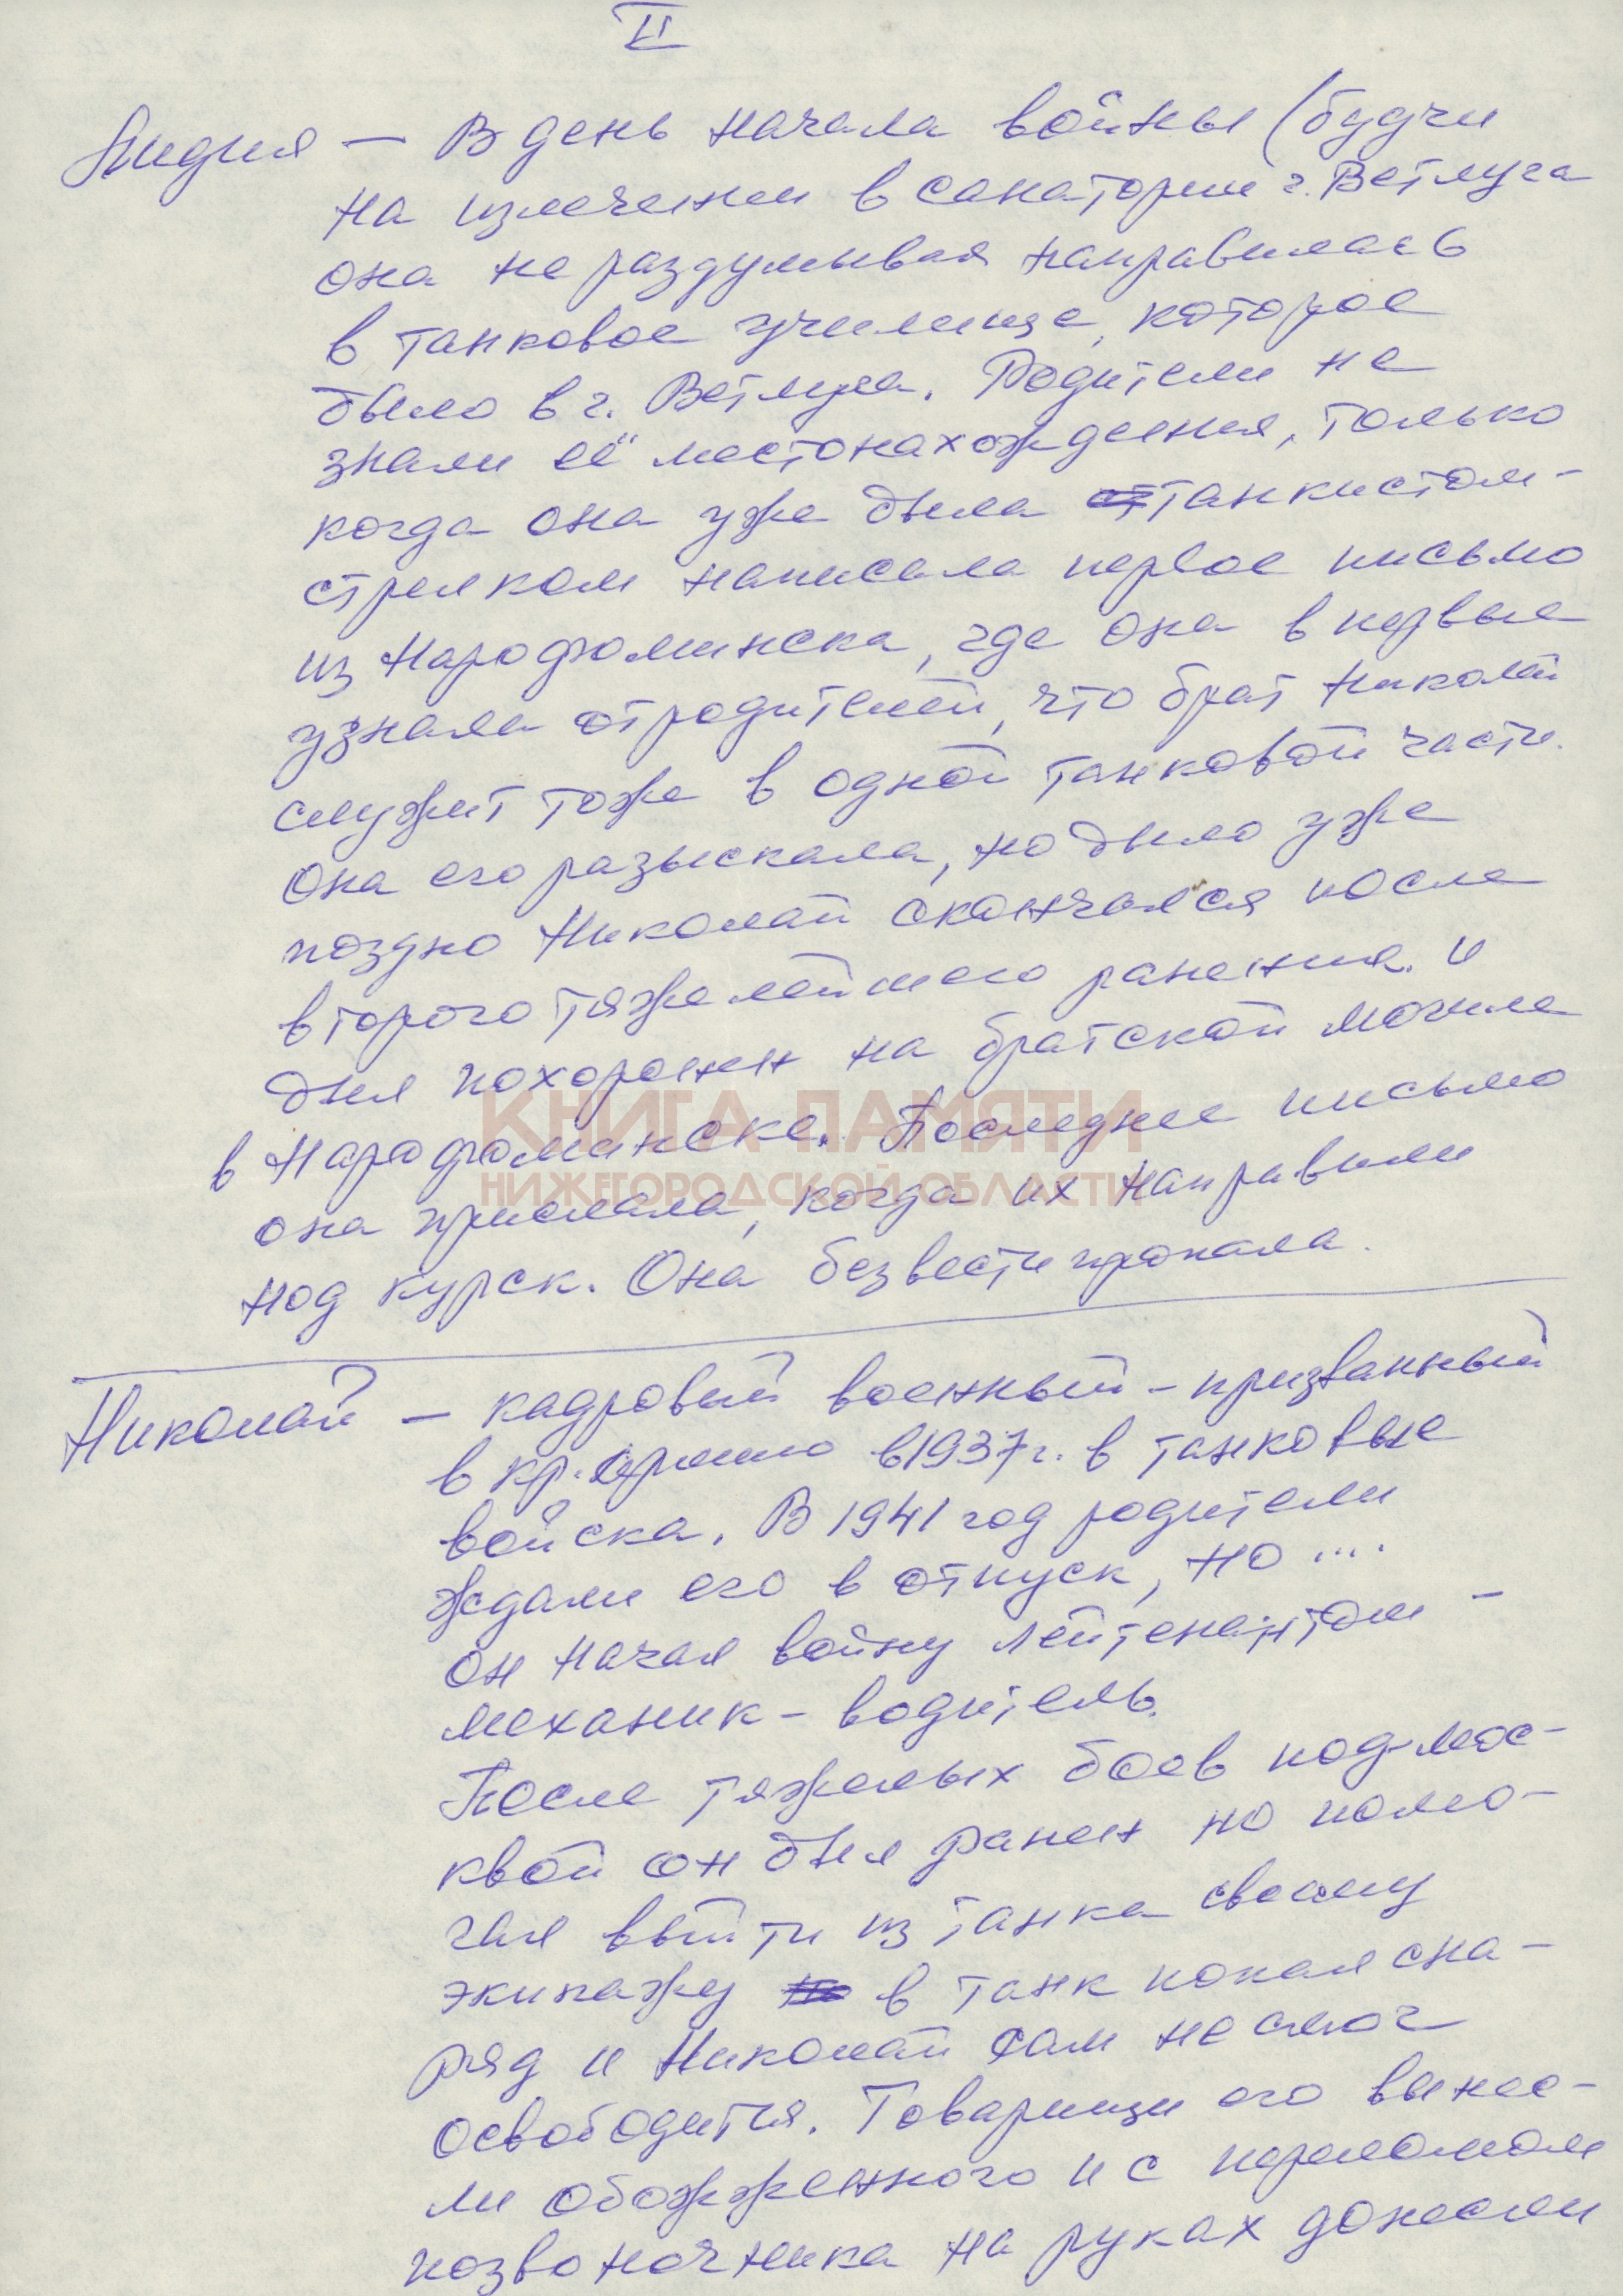 II
Лидия — В день начала войны (будучи
на излечении в санатории г. Ветлуга
она не раздумывая направилась
в танковое училище, которое
было в г. Ветлуга. Родители не
знали её местонахождения, только
когда она уже была танкистом-
стрелком написала первое письмо
из Нарофоминска, где она впервые
узнала от родителей, что брат Николай
служит тоже в одной танковой части.
Она его разыскала, но было уже
поздно Николай скончался после
второго тяжелейшего ранения. и
был похоронен на братской могиле
КНИГА ПАМЯТИ
в Нарофоминске. Последнее письмо
НИЖЕГОРОДСКОЙ ОБЛАСТИ
она прислала, когда их направили
под курск. Она безвести пропала.
Николай — кадровый военный - призванный
в кр. армию в 1937 г. в танковые
войска. В 1941 год родители
ждали его в отпуск, но ....
он начал войну лейтенантом -
механик - водитель.
После тяжелых боев под-мос-
квой он был ранен но помо-
гая выйти из танка своему
экипажу в танк попал сна-
ряд и Николай сам не смог
освободится. Товарищи его вынес-
ли обожженного и с переломом
позвоночника на руках донесли